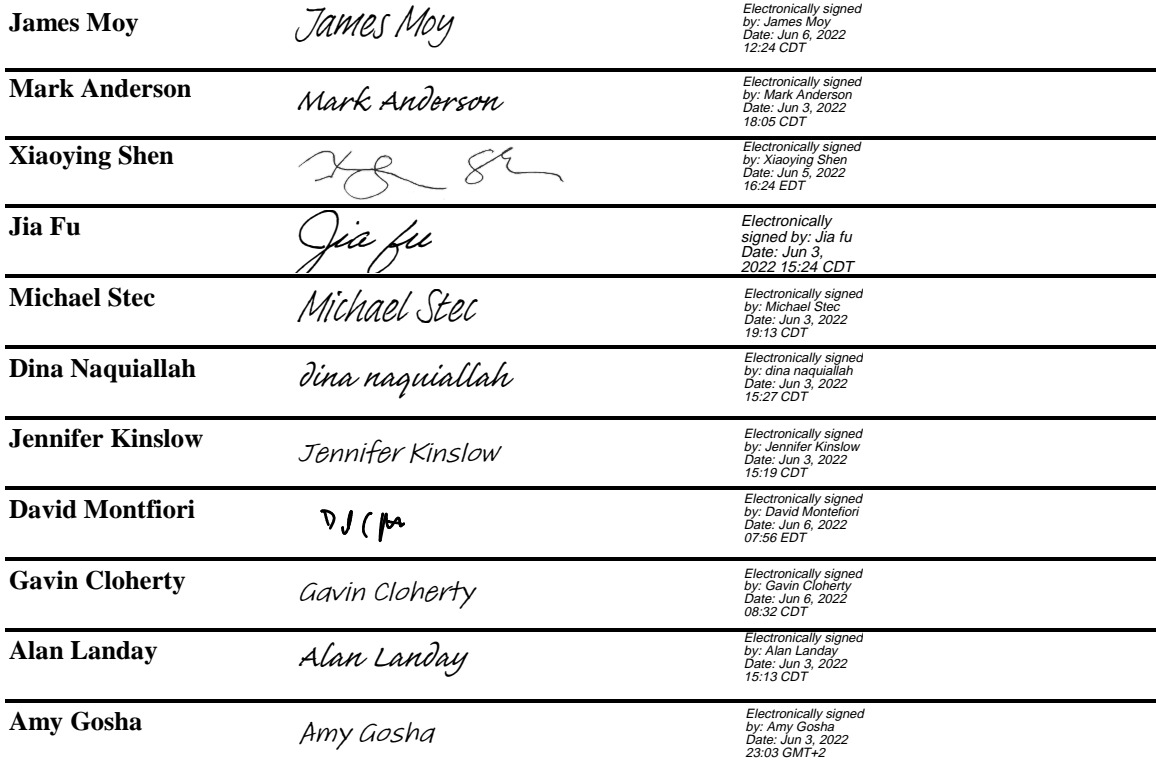 James Moy
James Moy
Electronically signed
by: James Moy
Date: Jun 6, 2022
12:24 CDT
Mark Anderson
Mark Anderson
Electronically signed
by: Mark Anderson
Date: Jun 3, 2022
18:05 CDT
Xiaoying Shen
Electronically signed
by: Xiaoying Shen
Date: Jun 5, 2022
16:24 EDT
Jia Fu
Jia fu
Electronically
signed by: Jia fu
Date: Jun 3,
2022 15:24 CDT
Michael Stec
Michael Stec
Electronically signed
by: Michael Stec
Date: Jun 3, 2022
19:13 CDT
Dina Naquiallah
dina naquiallah
Electronically signed
by: dina naquiallah
Date: Jun 3, 2022
15:27 CDT
Jennifer Kinslow
Jennifer Kinslow
Electronically signed
by: Jennifer Kinslow
Date: Jun 3, 2022
15:19 CDT
David Montfiori
Electronically signed
by: David Montefiori
Date: Jun 6, 2022
07:56 EDT
Gavin Cloherty
Gavin Cloherty
Electronically signed
by: Gavin Cloherty
Date: Jun 6, 2022
08:32 CDT
Alan Landay
Alan Landay
Electronically signed
by: Alan Landay
Date: Jun 3, 2022
15:13 CDT
Amy Gosha
Amy Gosha
Electronically signed
by: Amy Gosha
Date: Jun 3, 2022
23:03 GMT+2